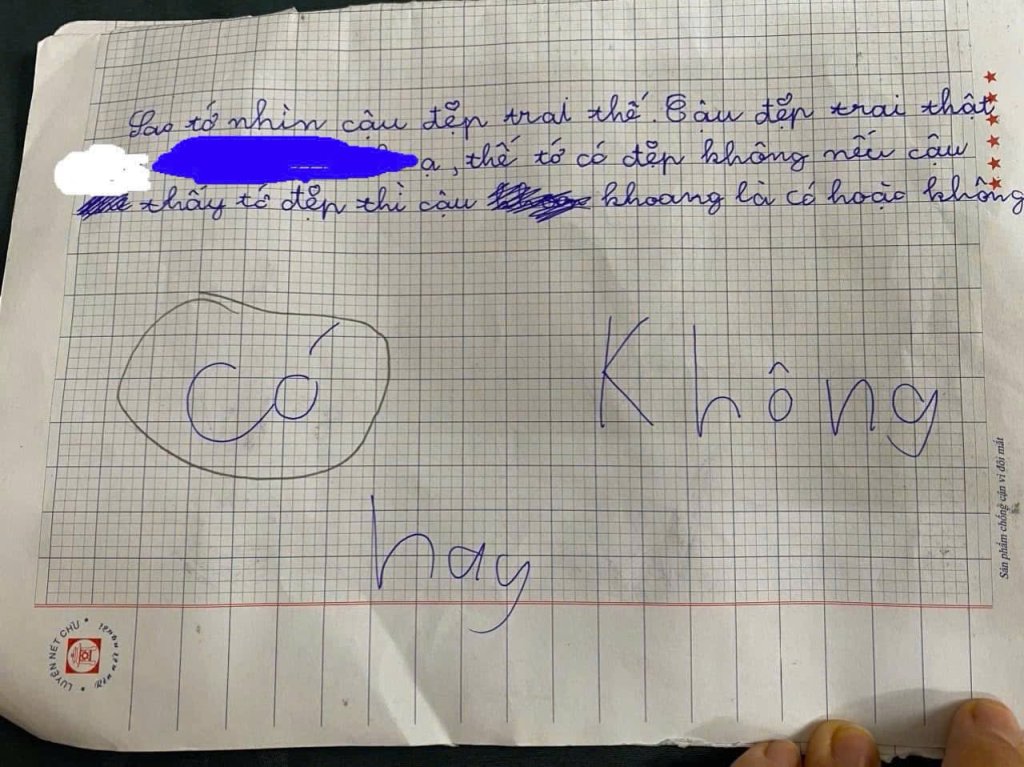 Sao tớ nhìn cậu đẹp trai thế. Cậu đẹp trai thật
ạ, thế tớ có đẹp không nếu câu
thấy tớ đẹp thì cậu khoang là có hoặc không
Có
Không
hay
Sản phẩm chống cận vì đôi mắt
LUYỆN NÉT CHỮ